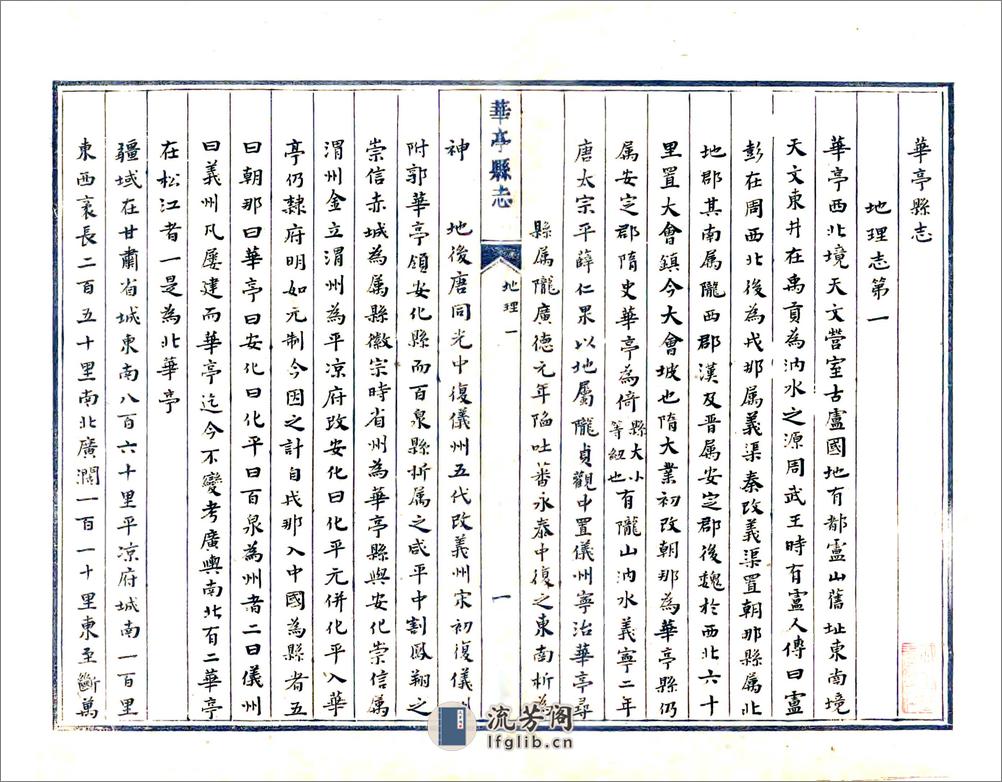 華亭縣志
地理志第一
華亭西北境天文營室古盧國地有都盧山舊址東尚境
天文東井在禹貢為汭水之源周武王時有盧人傳曰盧
彭在周西北後為戎那属義渠秦改義渠置朝那縣属北
地郡其南属隴西郡漢及晋属安定郡後魏於西北六十
里置大會鎮今大會坡也隋大業初改朝那為華亭縣仍
属安定郡隋史華亭為倚縣大小等紐也有隴山汭水義寧二年
唐太宗平薛仁果以地屬隴貞觀中置儀州寧治華亭尋
縣属隴廣德元年陷吐蕃永泰中復之東南析為
華亭縣志
地理一
一
神
地後唐同光中復儀州五代改義州宋初復儀州
附郭華亭領安化縣而百泉縣析属之咸平中割鳳翔之
崇信赤城為属縣徽宗時省州為華亭縣與安化崇信属
渭州金立渭州為平涼府改安化曰化平元併化平入華
亭仍隸府明如元制今因之計自戎那入中國為縣者五
曰朝那曰華亭曰安化曰化平曰百泉為州者二曰儀州
曰義州凡屡建而華亭迄今不變考廣輿南北有二華亭
在松江者一是為北華亭
疆域在甘肅省城東南八百六十里平凉府城南一百里
東西袤長二百五十里南北廣濶一百一十里東至斷萬
流芳阁
lfglib.cn